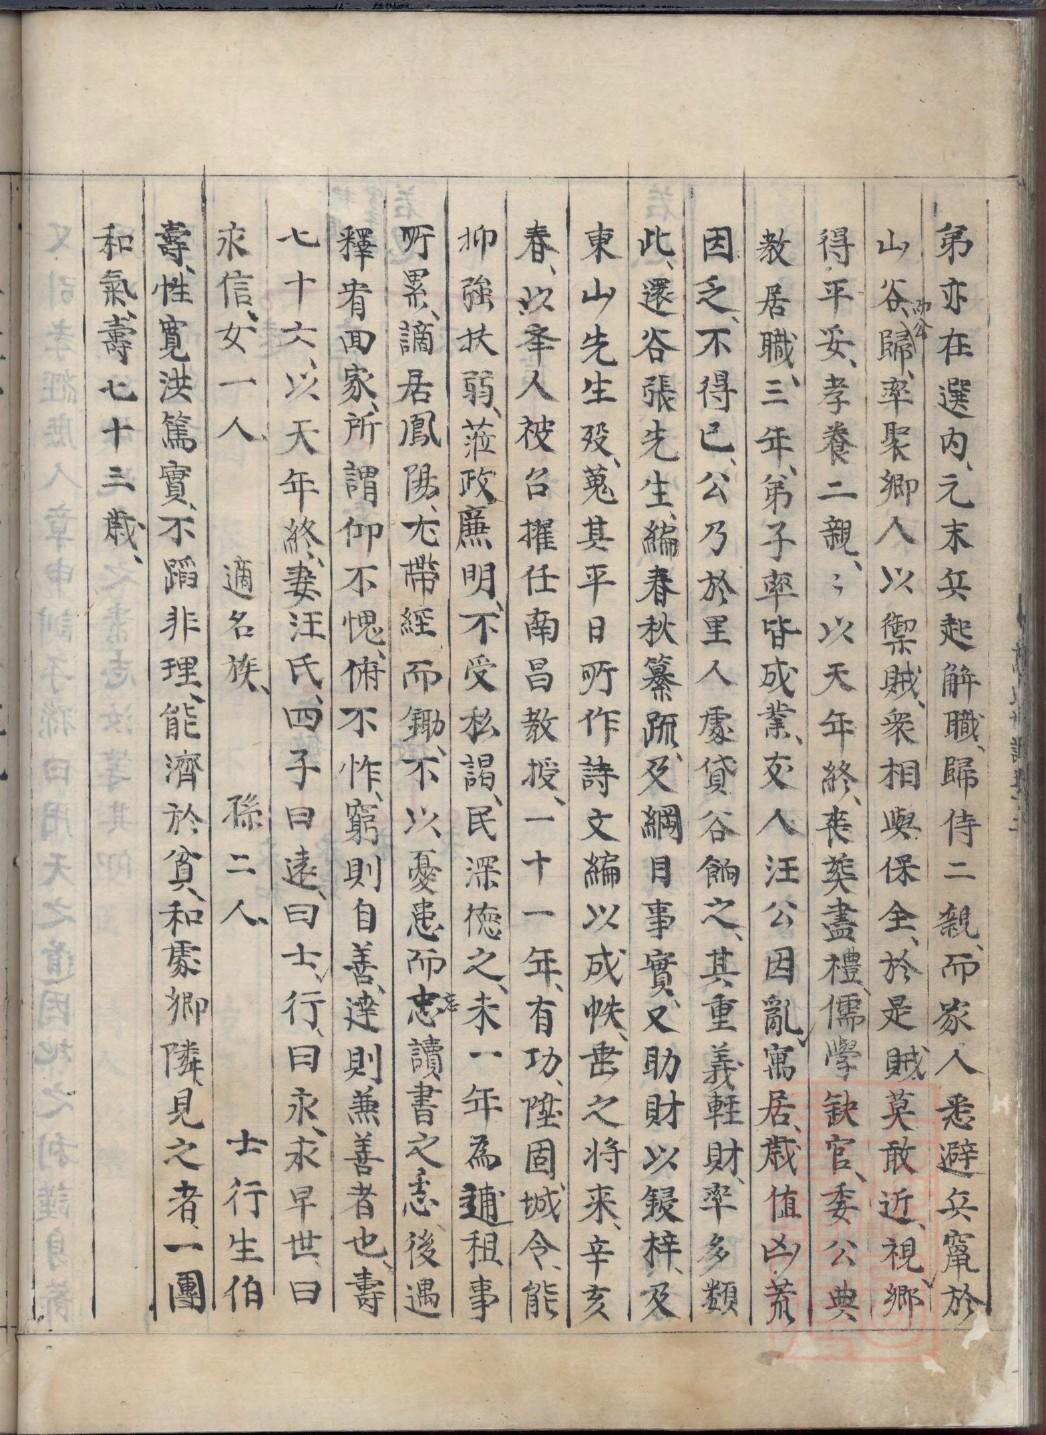 第亦在選內、元末兵起解職、歸侍二親、而家人悉避兵竄於
山谷、而公歸、率聚鄉人以禦賊、衆相與保全、於是賊莫敢近、視鄉
得平妥、孝養二親、〻以天年終、喪葬盡禮、儒學缺官、委公典
教居職、三年、弟子率皆成業、友人汪公因亂寓居、歲值凶荒
因乏、不得已、公乃於里人處貸谷餉之、其重義輕財、率多類
此、還谷張先生、編春秋纂疏、及綱目事實、又助財以鋟梓、及
東山先生歿、蒐其平日所作詩文編以成帙、垂之將来、辛亥
春、以奉人被召擢任南昌教授、一十一年、有功、陞固城令、能
抑強扶弱、蒞政廉明、不受私謁、民深德之、未一年為逋租事
所累、謫居鳳陽、尤帶經而鋤、不以憂患而忠忘讀書之志、後遇
釋宥回家、所謂仰不愧、俯不怍、窮則自善、達則兼善者也、壽
七十六、以天年終、妻汪氏、四子曰遠、曰士、行、曰永、永早世、曰
永信、女一人、適名族、孫二人、士行生伯
壽、性寬洪篤實、不蹈非理、能濟於貧、和處鄉隣、見之者、一團
和氣、壽七十三歲、